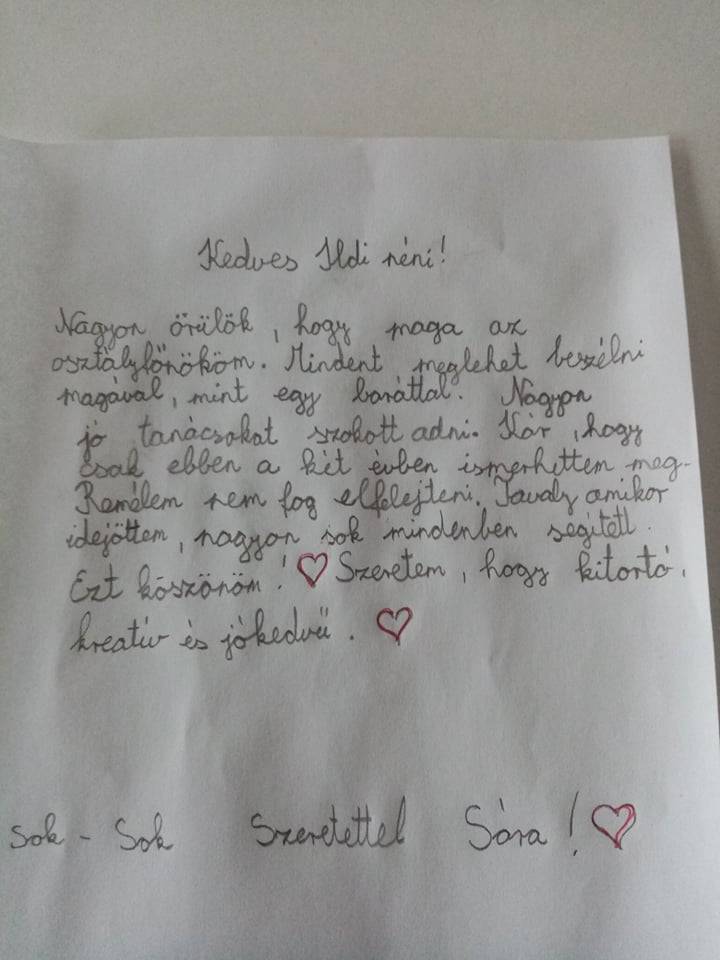 Kedves Ildi néni!
Nagyon örülök, hogy maga az
osztályfőnököm. Mindent meglehet beszélni
magával, mint egy baráttal. Nagyon
jó tanácsokat szokott adni. Kár, hogy
csak ebben a két évben ismerhettem meg.
Remélem nem fog elfelejteni. Tavaly amikor
idejöttem, nagyon sok mindenben segített.
Ezt köszönöm! Szeretem, hogy kitortó,
kreatív és jókedvű.
Sok - Sok Szeretettel Sára!